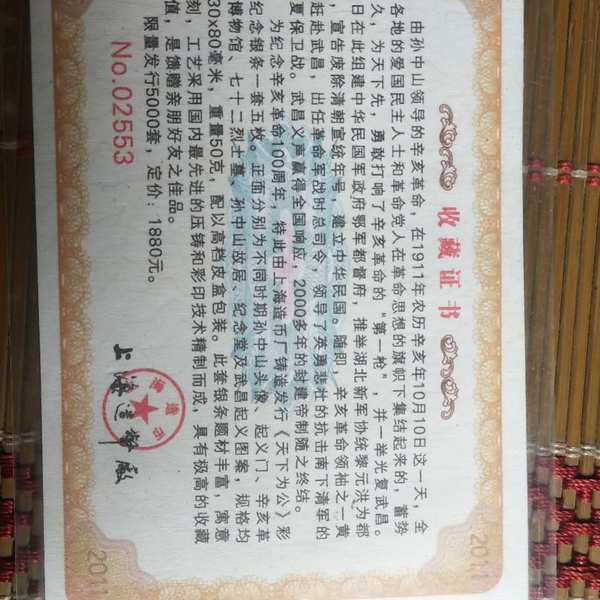 收藏证书
由孙中山领导的辛亥革命，在1911年农历辛亥年10月10日这一天，全
各地的爱国民主人士和革命党人在革命思想的旗帜下集结起来的，蓄势
久，为天下先，勇敢打响了辛亥革命的“第一枪”，并一举光复武昌。
日在此组建中华民国军政府鄂军都督府，推举湖北新军协统黎元洪为都
，宣告废除清朝宣统年号，建立中华民国。随即，辛亥革命领袖之一黄
赶赴武昌，出任革命军战时总司令，领导了英勇悲壮的抗击南下清军的
夏保卫战。武昌义声赢得全国响应，2000多年的封建帝制随之终结。
为纪念辛亥革命100周年，特此由上海造币厂铸造发行《天下为公》彩
纪念银条一套五枚，正面分别为不同时期孙中山头像、起义门、辛亥革
博物馆、七十二烈士墓、孙中山故居、纪念堂及武昌起义图案，规格均
30×80毫米，重量50克，配以高档皮盒包装。此套银条题材丰富，寓意
刻，工艺采用国内最先进的压铸和彩印技术精制而成，具有极高的收藏
值，是馈赠亲朋好友之佳品。
限量发行5000套，定价：1880元。
No.02553
上海造币厂
2011
2011